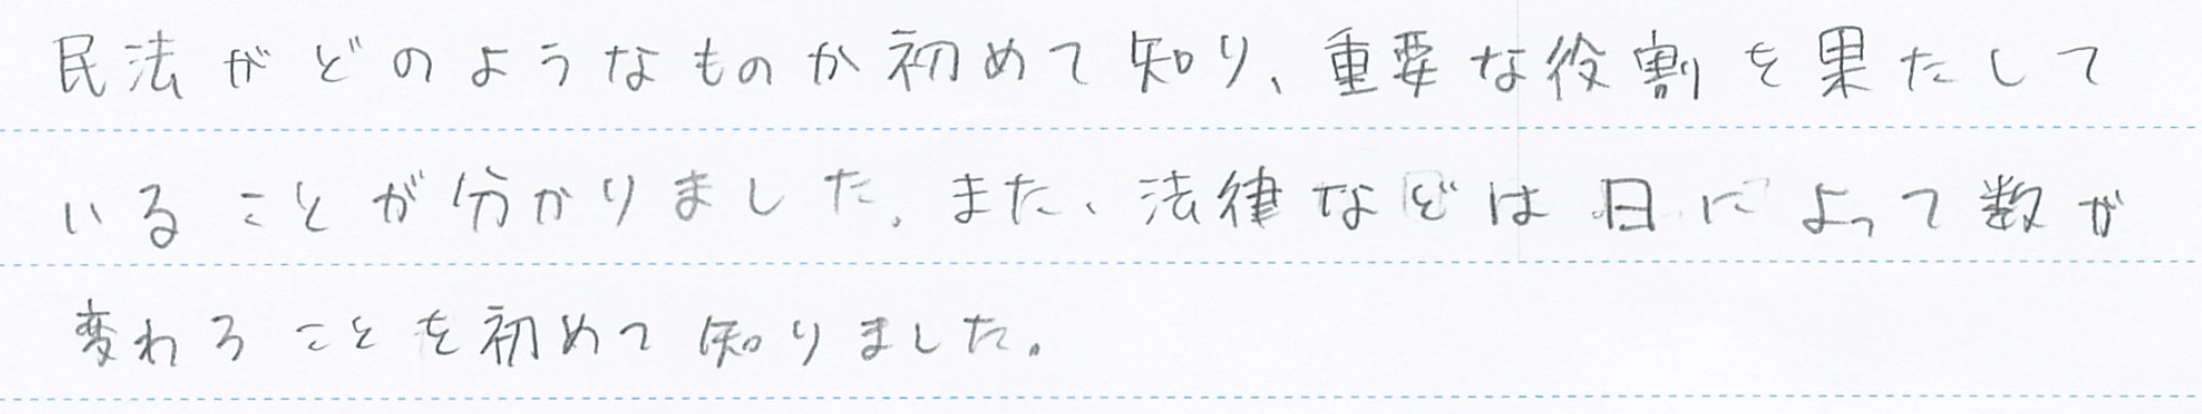 民法がどのようなものか初めて知り、重要な役割を果たして
いることが分かりました。また、法律などは日によって数が
変わることを初めて知りました。